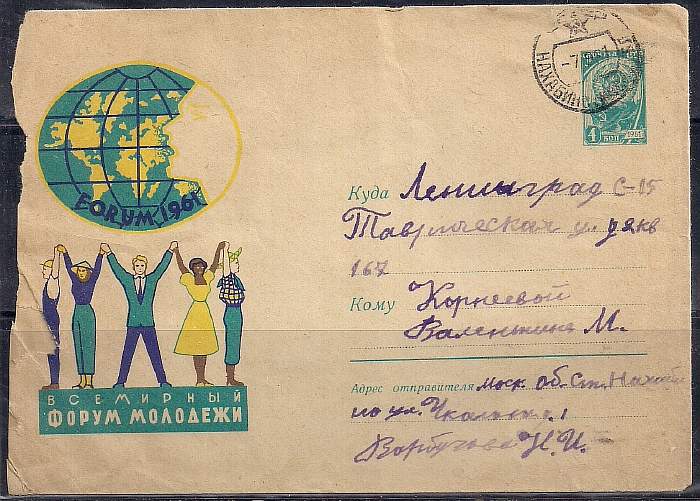 FORUM 1961
ВСЕМИРНЫЙ
ФОРУМ МОЛОДЕЖИ
НАХАБИНО
ПОЧТА
4 КОП 1961
Куда Ленинград С-15
Таврическая у.
167
Кому Корнеевой
Валентине М.
Адрес отправителя Моск об. ст. Нахаби
но ул.
Н. И.